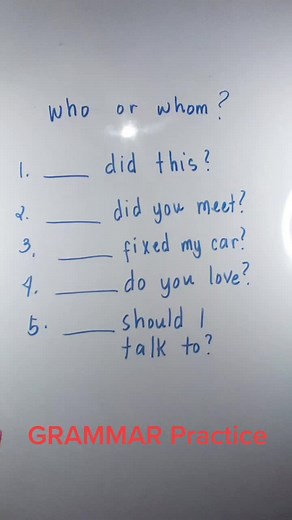 who or whom?
1. ___ did this?
2. ___ did you meet?
3. ___ fixed my car?
4. ___ do you love?
5. ___ should I
talk to?
GRAMMAR Practice